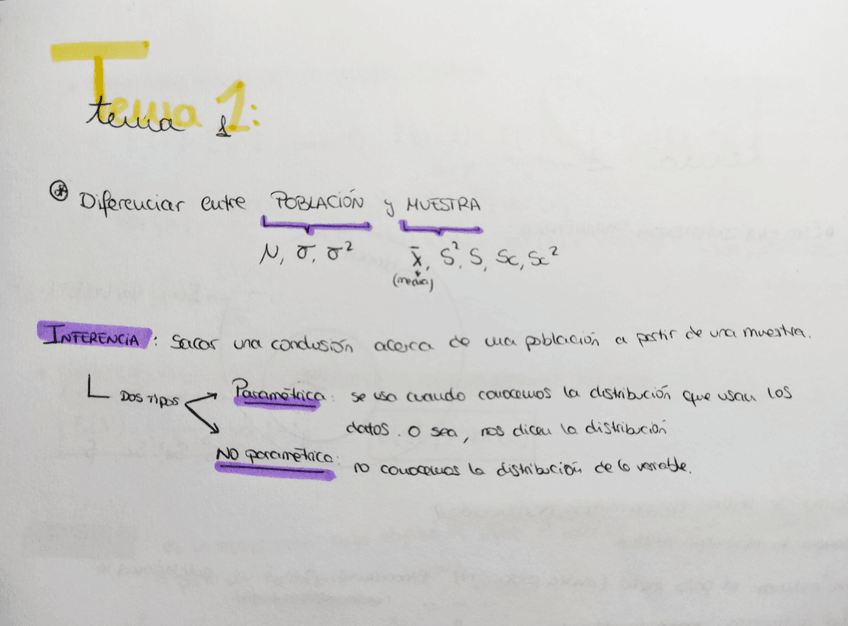 Tema 1:
tema 1
* Diferenciar entre POBLACIÓN y MUESTRA
N, σ, σ² x̄, S², S, Sc, Sc²
(media)
INFERENCIA: sacar una conclusión acerca de una población a partir de una muestra.
DOS TIPOS Paramétrica: se usa cuando conocemos la distribución que usan los
datos. O sea, nos dicen la distribución
NO paramétrica: no conocemos la distribución de la variable.